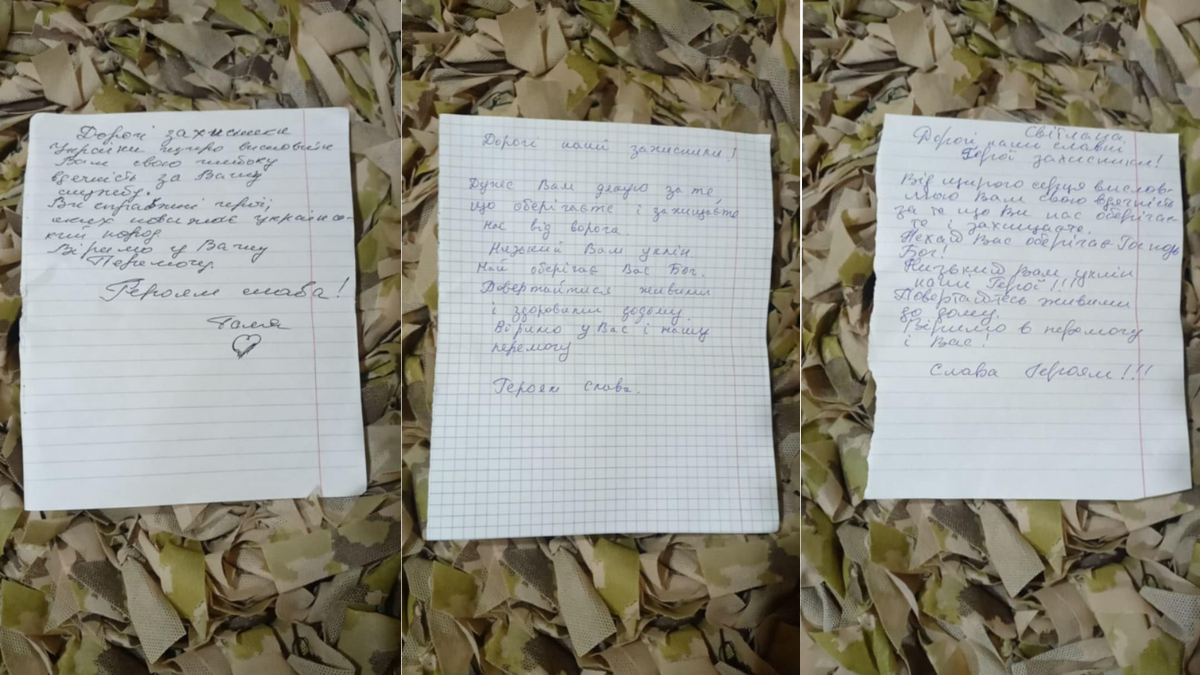 Дорогі захисники
України щиро висловлюю
Вам свою глибоку
вдячність за Вашу
службу.
Ви справжні герої,
яких поважає українсь-
кий народ
Віримо у Вашу
Перемогу.
Героям слава!
Галя
Дорогі наші захисники!
Дуже Вам дякую за те
що оберігаєте і захищаєте
нас від ворога
Низький Вам уклін
Най оберігає Вас Бог.
Повертайтися живими
і здоровими додому
Віримо у Вас і нашу
перемогу
Героям Слава.
Світлана
Дорогі наші славні
Герої захисники!
Від щирого серця вислов-
люю Вам свою вдячність
за те що Ви нас оберігає-
те і захищаєте.
Нехай Вас оберігає Господь
Бог!
Низький Вам уклін
наші Герої!!!
Повертайтесь живими
до дому.
Віримо в перемогу
і Вас!
Слава Героям!!!